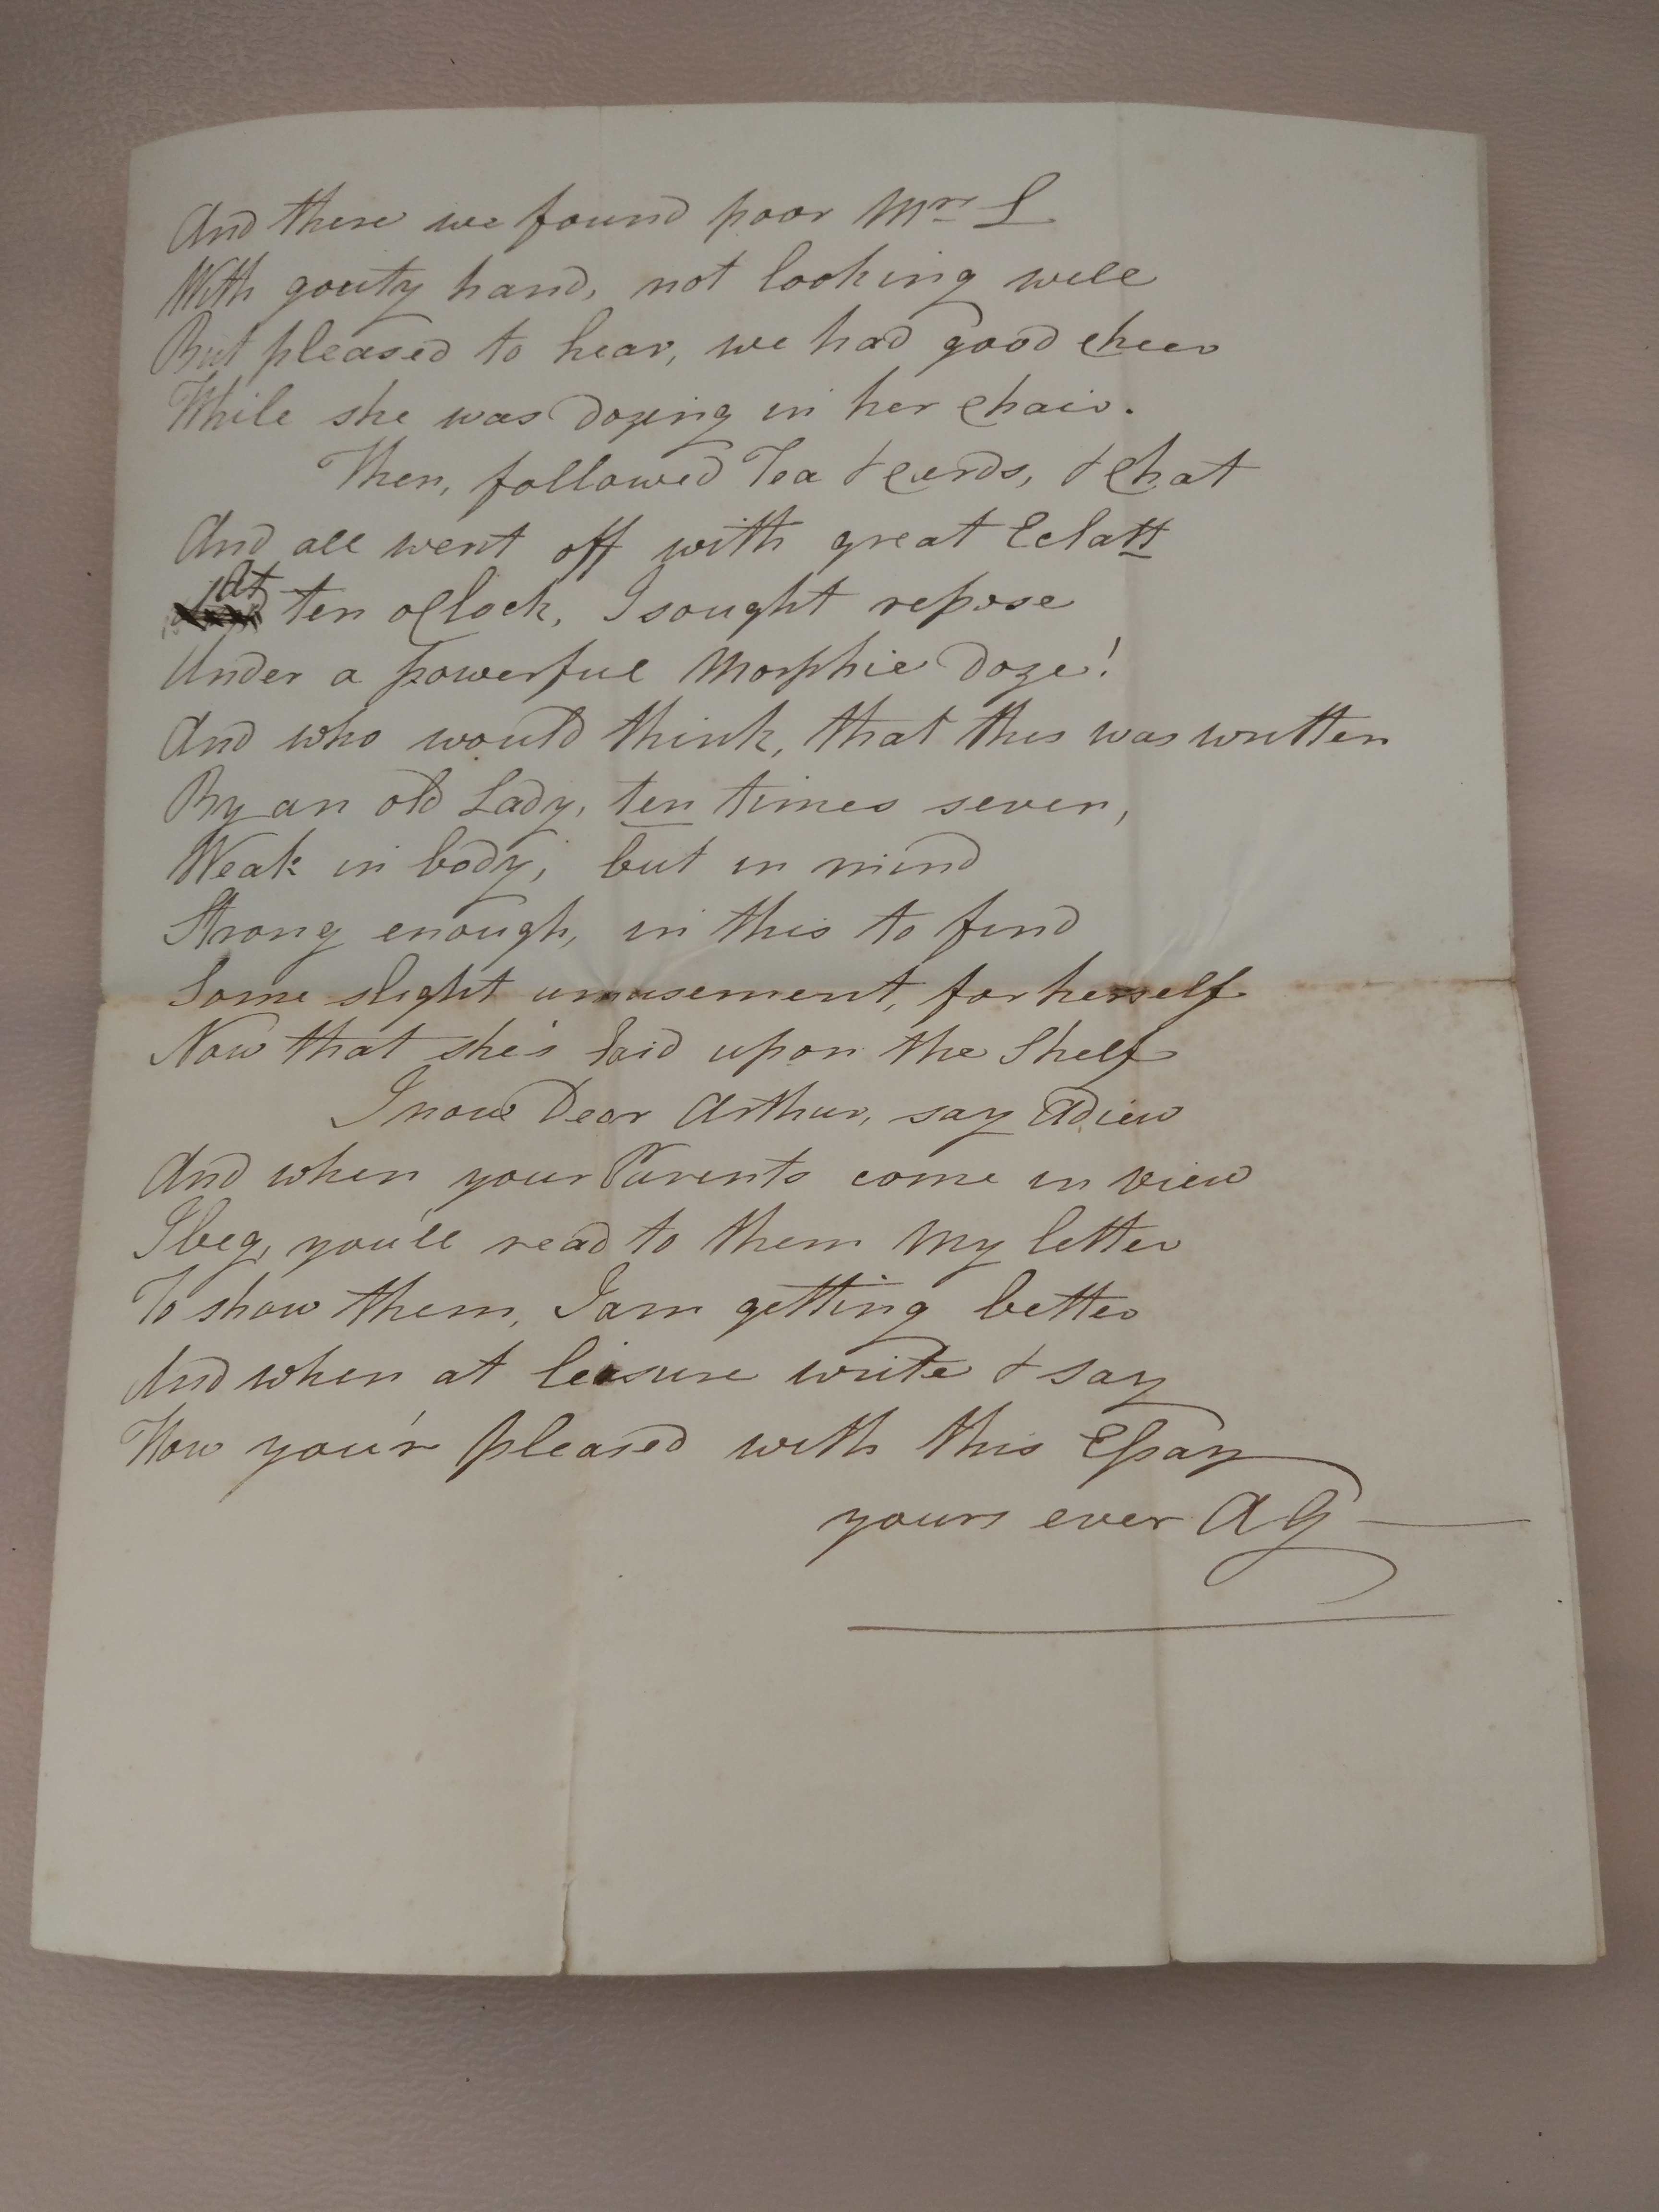 And there we found poor Mrs L
With gouty hand, not looking well
But pleased to hear, we had good cheer
While she was dozing in her chair.
Then, followed Tea & Cards, & Chat
And all went off with great Eclatt
At ten oClock, I sought repose
Under a powerful Morphie Doze!
And who would think, that this was written
By an old Lady, ten times seven,
Weak in body, but in mind
Strong enough, in this to find
Some slight amusement, for herself
Now that she's laid upon the Shelf
I now Dear Arthur, say Adieu
And when your Parents come in view
I beg, you'll read to them My letter
To show them, I am getting better
And when at leisure write & say
How you'r pleased with this Essay
yours ever AG